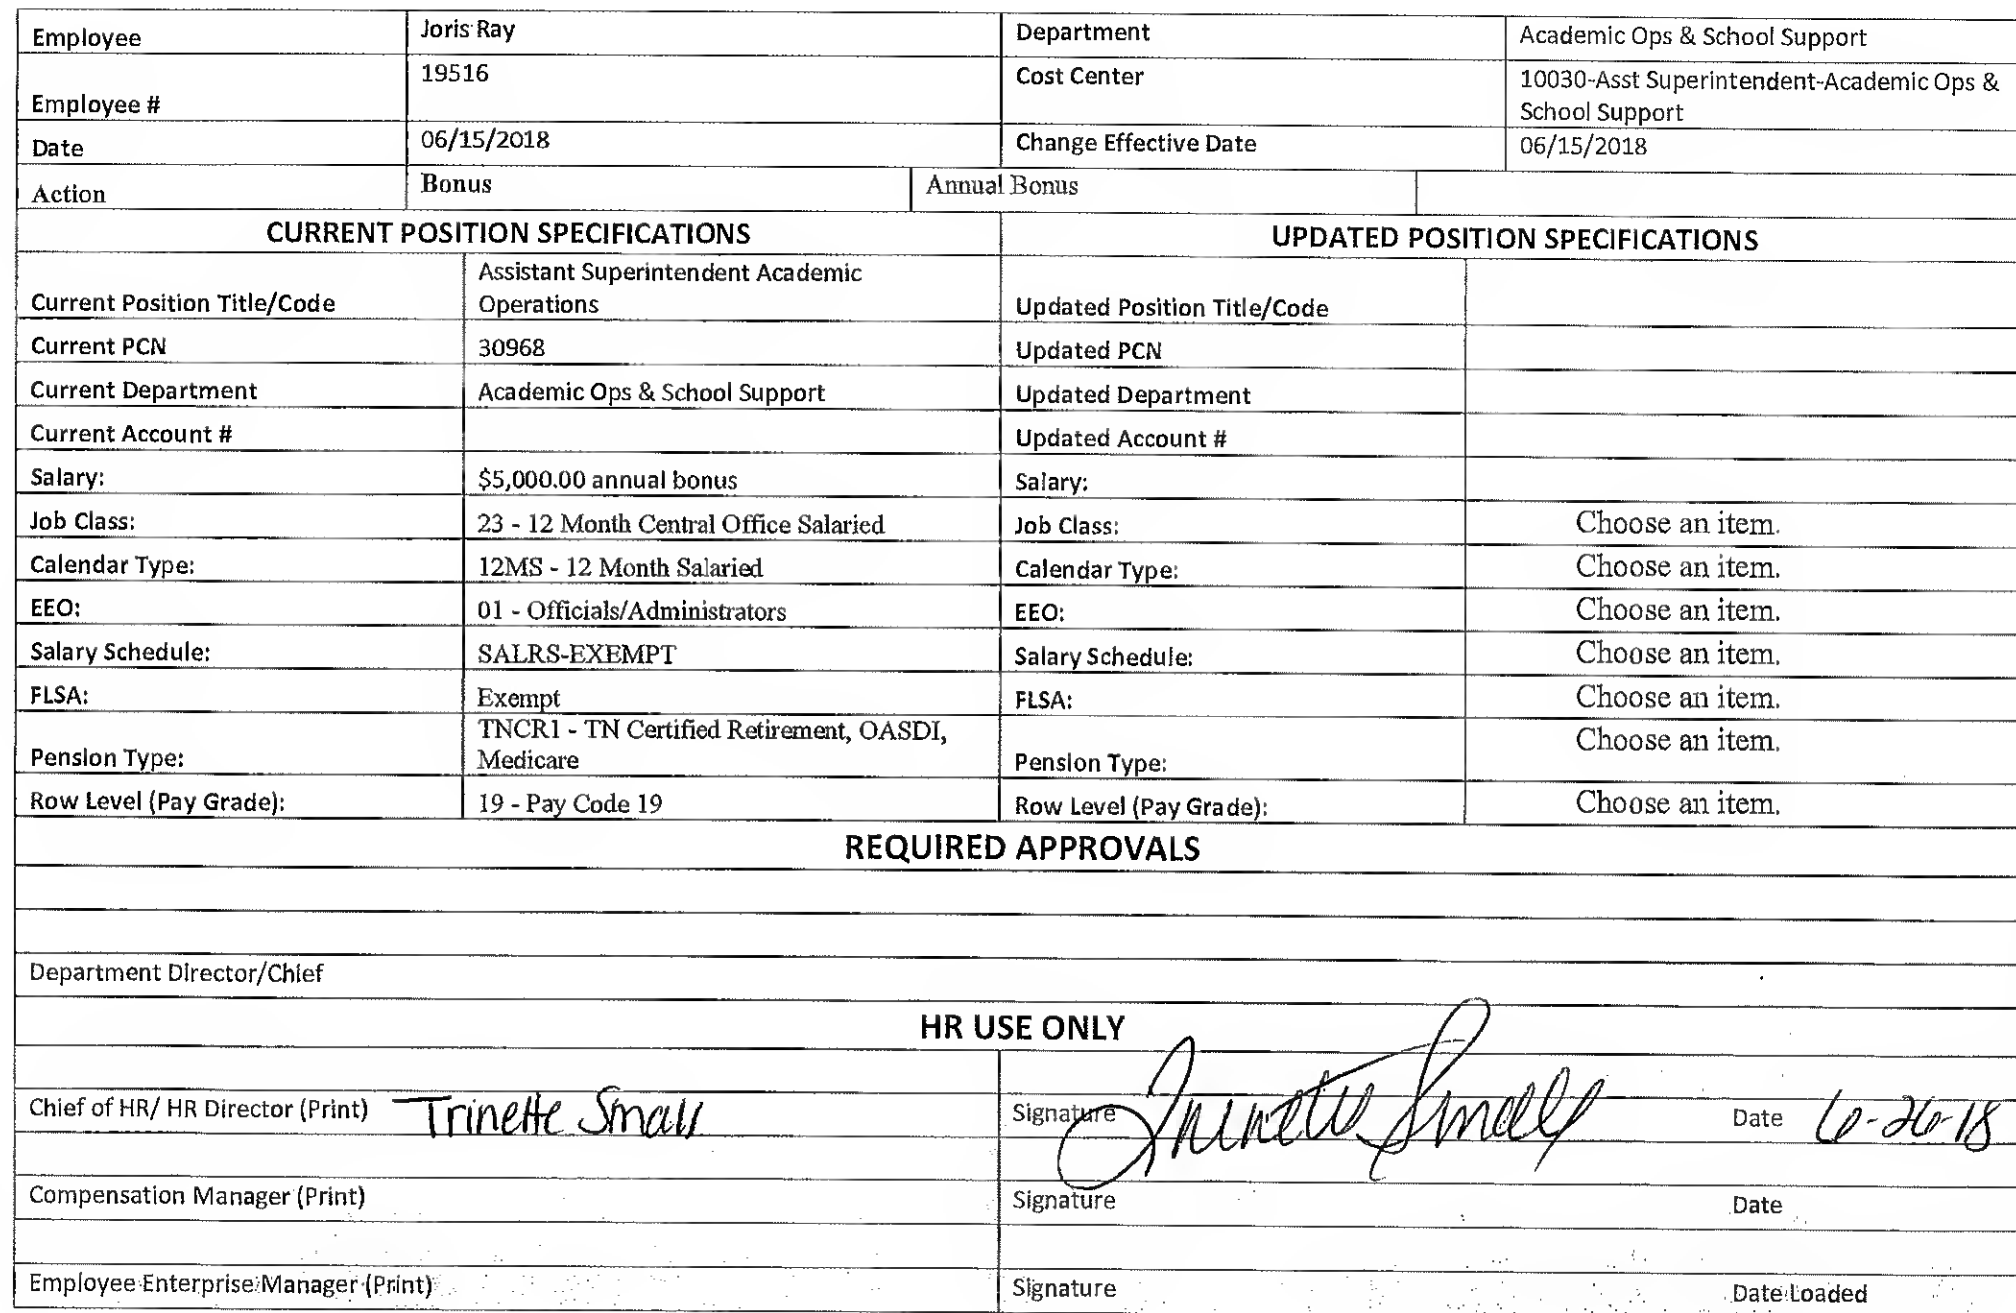 Employee Joris Ray Department Academic Ops & School Support
Employee # 19516 Cost Center 10030-Asst Superintendent-Academic Ops &
School Support
Date 06/15/2018 Change Effective Date 06/15/2018
Action Bonus Annual Bonus
CURRENT POSITION SPECIFICATIONS UPDATED POSITION SPECIFICATIONS
Assistant Superintendent Academic
Current Position Title/Code Operations Updated Position Title/Code
Current PCN 30968 Updated PCN
Current Department Academic Ops & School Support Updated Department
Current Account # Updated Account #
Salary: $5,000.00 annual bonus Salary:
Job Class: 23 - 12 Month Central Office Salaried Job Class: Choose an item.
Calendar Type: 12MS - 12 Month Salaried Calendar Type: Choose an item.
EEO: 01 - Officials/Administrators EEO: Choose an item.
Salary Schedule: SALRS-EXEMPT Salary Schedule: Choose an item.
FLSA: Exempt FLSA: Choose an item.
TNCR1 - TN Certified Retirement, OASDI, Choose an item.
Pension Type: Medicare Pension Type:
Row Level (Pay Grade): 19 - Pay Code 19 Row Level (Pay Grade): Choose an item.
REQUIRED APPROVALS
Department Director/Chief
HR USE ONLY
Chief of HR/ HR Director (Print) Trinette Small Signature Trinette Small Date 6-26-18
Compensation Manager (Print) Signature Date
Employee Enterprise Manager (Print) Signature Date Loaded